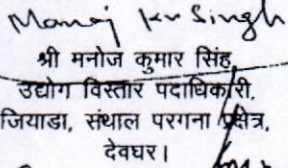 Manoj Kr Singh
श्री मनोज कुमार सिंह,
उद्योग विस्तार पदाधिकारी,
जियाडा, संथाल परगना क्षेत्र,
देवघर।